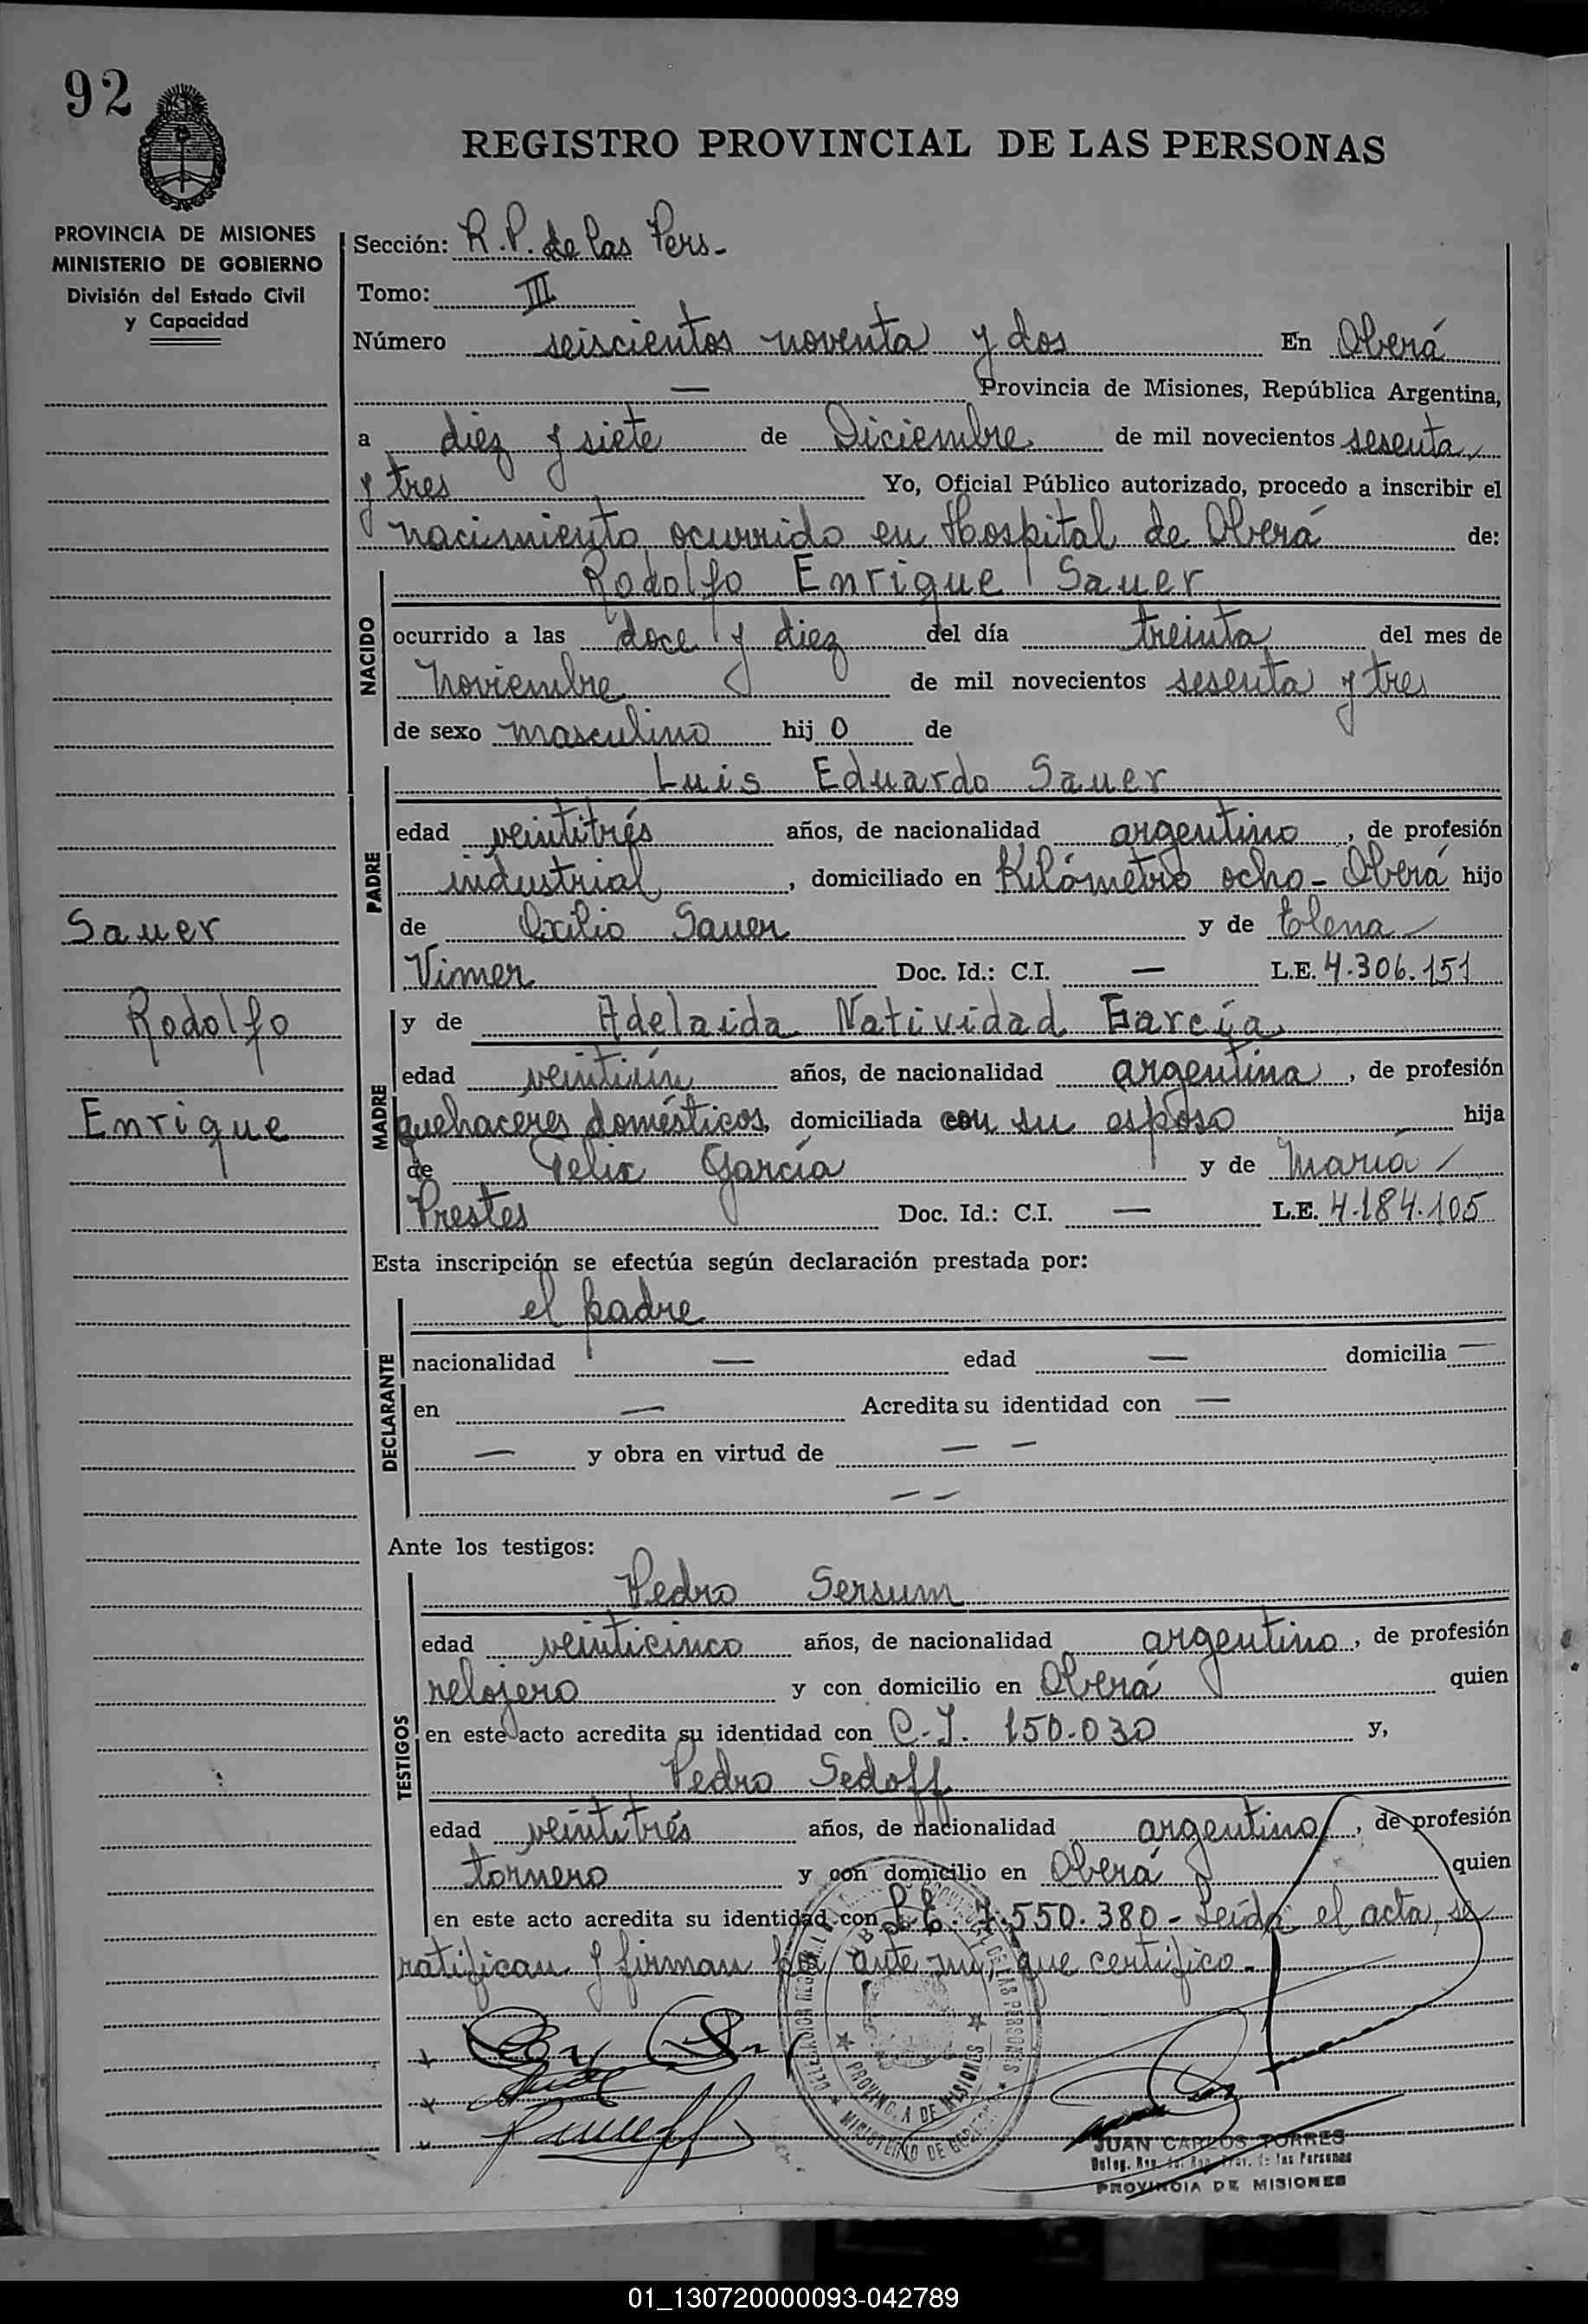 92
REGISTRO PROVINCIAL DE LAS PERSONAS
PROVINCIA DE MISIONES
MINISTERIO DE GOBIERNO
División del Estado Civil
y Capacidad
Sección: R.P. de las Pers-
Tomo: III
Número seiscientos noventa y dos En Oberá
— Provincia de Misiones, República Argentina,
a diez y siete de Diciembre de mil novecientos sesenta
y tres Yo, Oficial Público autorizado, procedo a inscribir el
nacimiento ocurrido en Hospital de Oberá de:
NACIDO
Rodolfo Enrique Sauer
ocurrido a las doce y diez del día treinta del mes de
Noviembre de mil novecientos sesenta y tres
de sexo masculino hij o de
PADRE
Luis Eduardo Sauer
edad veintitrés años, de nacionalidad argentino, de profesión
industrial, domiciliado en Kilómetro ocho - Oberá hijo
de Oxilio Sauer y de Elena
Vimer Doc. Id.: C.I. — L.E. 4.306.151
MADRE
y de Adelaida Natividad García
edad veintiún años, de nacionalidad argentina, de profesión
quehaceres domésticos, domiciliada con su esposo hija
de Felix García y de María
Prestes Doc. Id.: C.I. — L.E. 4.184.105
Sauer
Rodolfo
Enrique
Esta inscripción se efectúa según declaración prestada por:
DECLARANTE
el padre
nacionalidad — edad — domicilia —
en — Acredita su identidad con —
— y obra en virtud de — —
— —
Ante los testigos:
TESTIGOS
Pedro Sersum
edad veinticinco años, de nacionalidad argentino, de profesión
relojero y con domicilio en Oberá quien
en este acto acredita su identidad con C.I. 150.030 y,
Pedro Sedoff
edad veintitrés años, de nacionalidad argentino, de profesión
tornero y con domicilio en Oberá quien
en este acto acredita su identidad con L.E. 7.550.380 - Leída el acta, se
ratifican y firman por ante mí, que certifico.-
PROVINCIA DE MISIONES
MINISTERIO DE GOBIERNO
JUAN CARLOS TORRES
Deleg. Reg. del Reg. Prov. de las Personas
PROVINCIA DE MISIONES
01_130720000093-042789